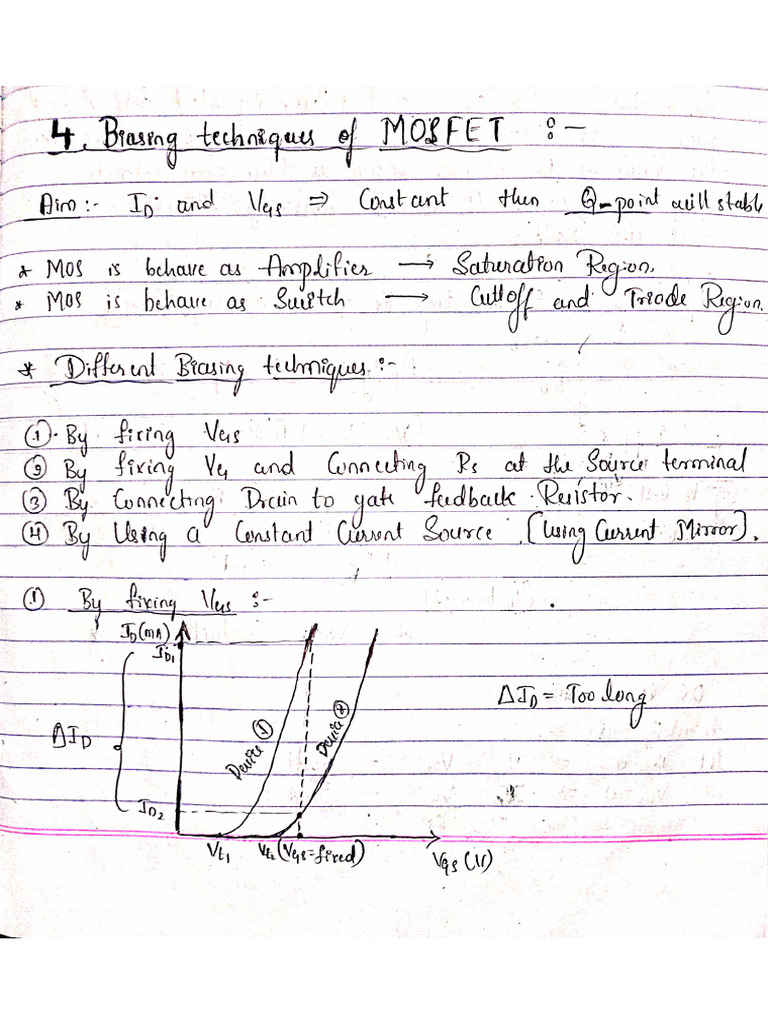 4. Biasing techniques of MOSFET :-
Aim:- ID and VGS ⇒ Constant then Q-point will stable
* MOS is behave as Amplifier → Saturation Region.
* MOS is behave as Switch → Cutoff and Triode Region.
* Different Biasing techniques :-
①. By fixing VGS
② By fixing VG and Connecting Rs at the Source terminal
③ By Connecting Drain to gate feedback Resistor.
④ By Using a Constant Current Source [Using Current Mirror].
① By fixing VGS :-
ID(mA)
ID1
ΔID = Too long
Device ①
Device ②
ΔID
ID2
Vt1 Vt2 (VGS = fixed)
VGS (V)